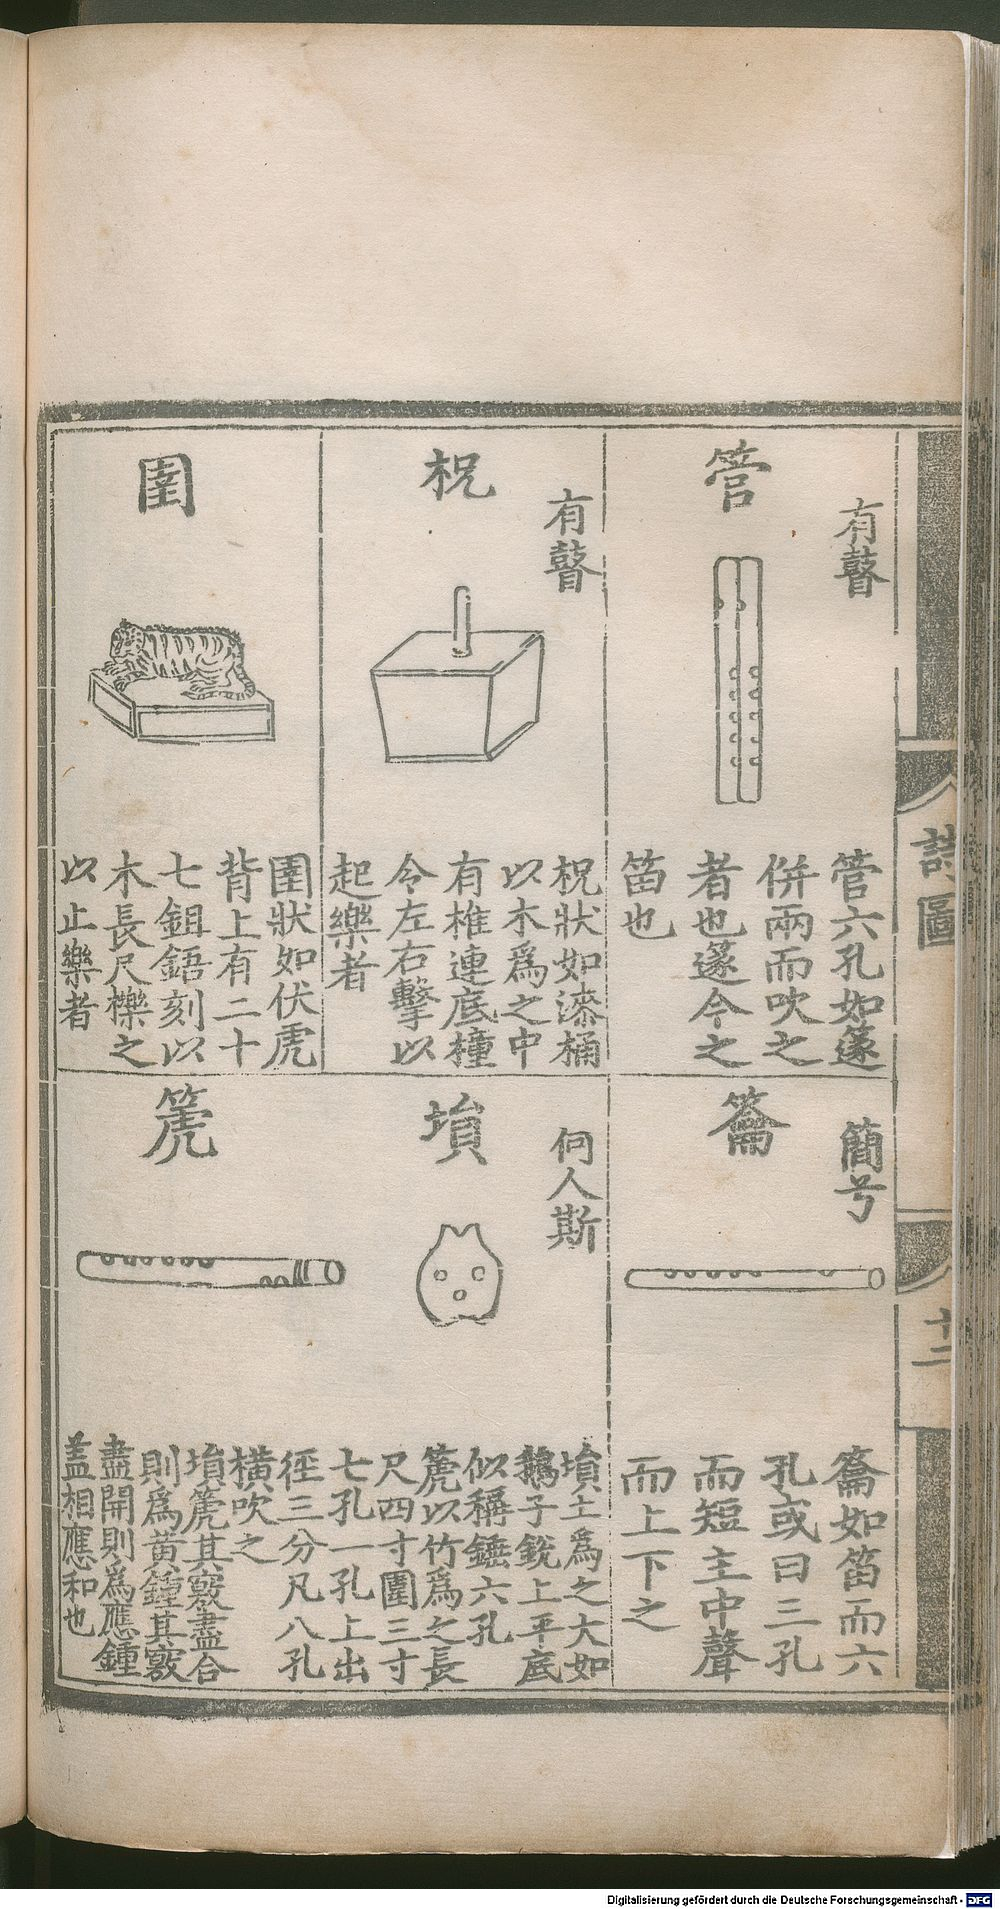 詩圖
廿二
有瞽
管
管六孔如篴
併兩而吹之
者也篴今之
笛也
有瞽
柷
柷狀如漆桶
以木爲之中
有椎連底撞
令左右擊以
起樂者
圉
圉狀如伏虎
背上有二十
七鉏鋙刻以
木長尺櫟之
以止樂者
簡兮
籥
籥如笛而六
孔或曰三孔
而短主中聲
而上下之
何人斯
塤
塤土爲之大如
鵝子銳上平底
似稱錘六孔
篪
篪以竹爲之長
尺四寸圍三寸
七孔一孔上出
徑三分凡八孔
橫吹之
塤篪其竅盡合
則爲黃鍾其竅
盡開則爲應鍾
盖相應和也
Digitalisierung gefördert durch die Deutsche Forschungsgemeinschaft - DFG